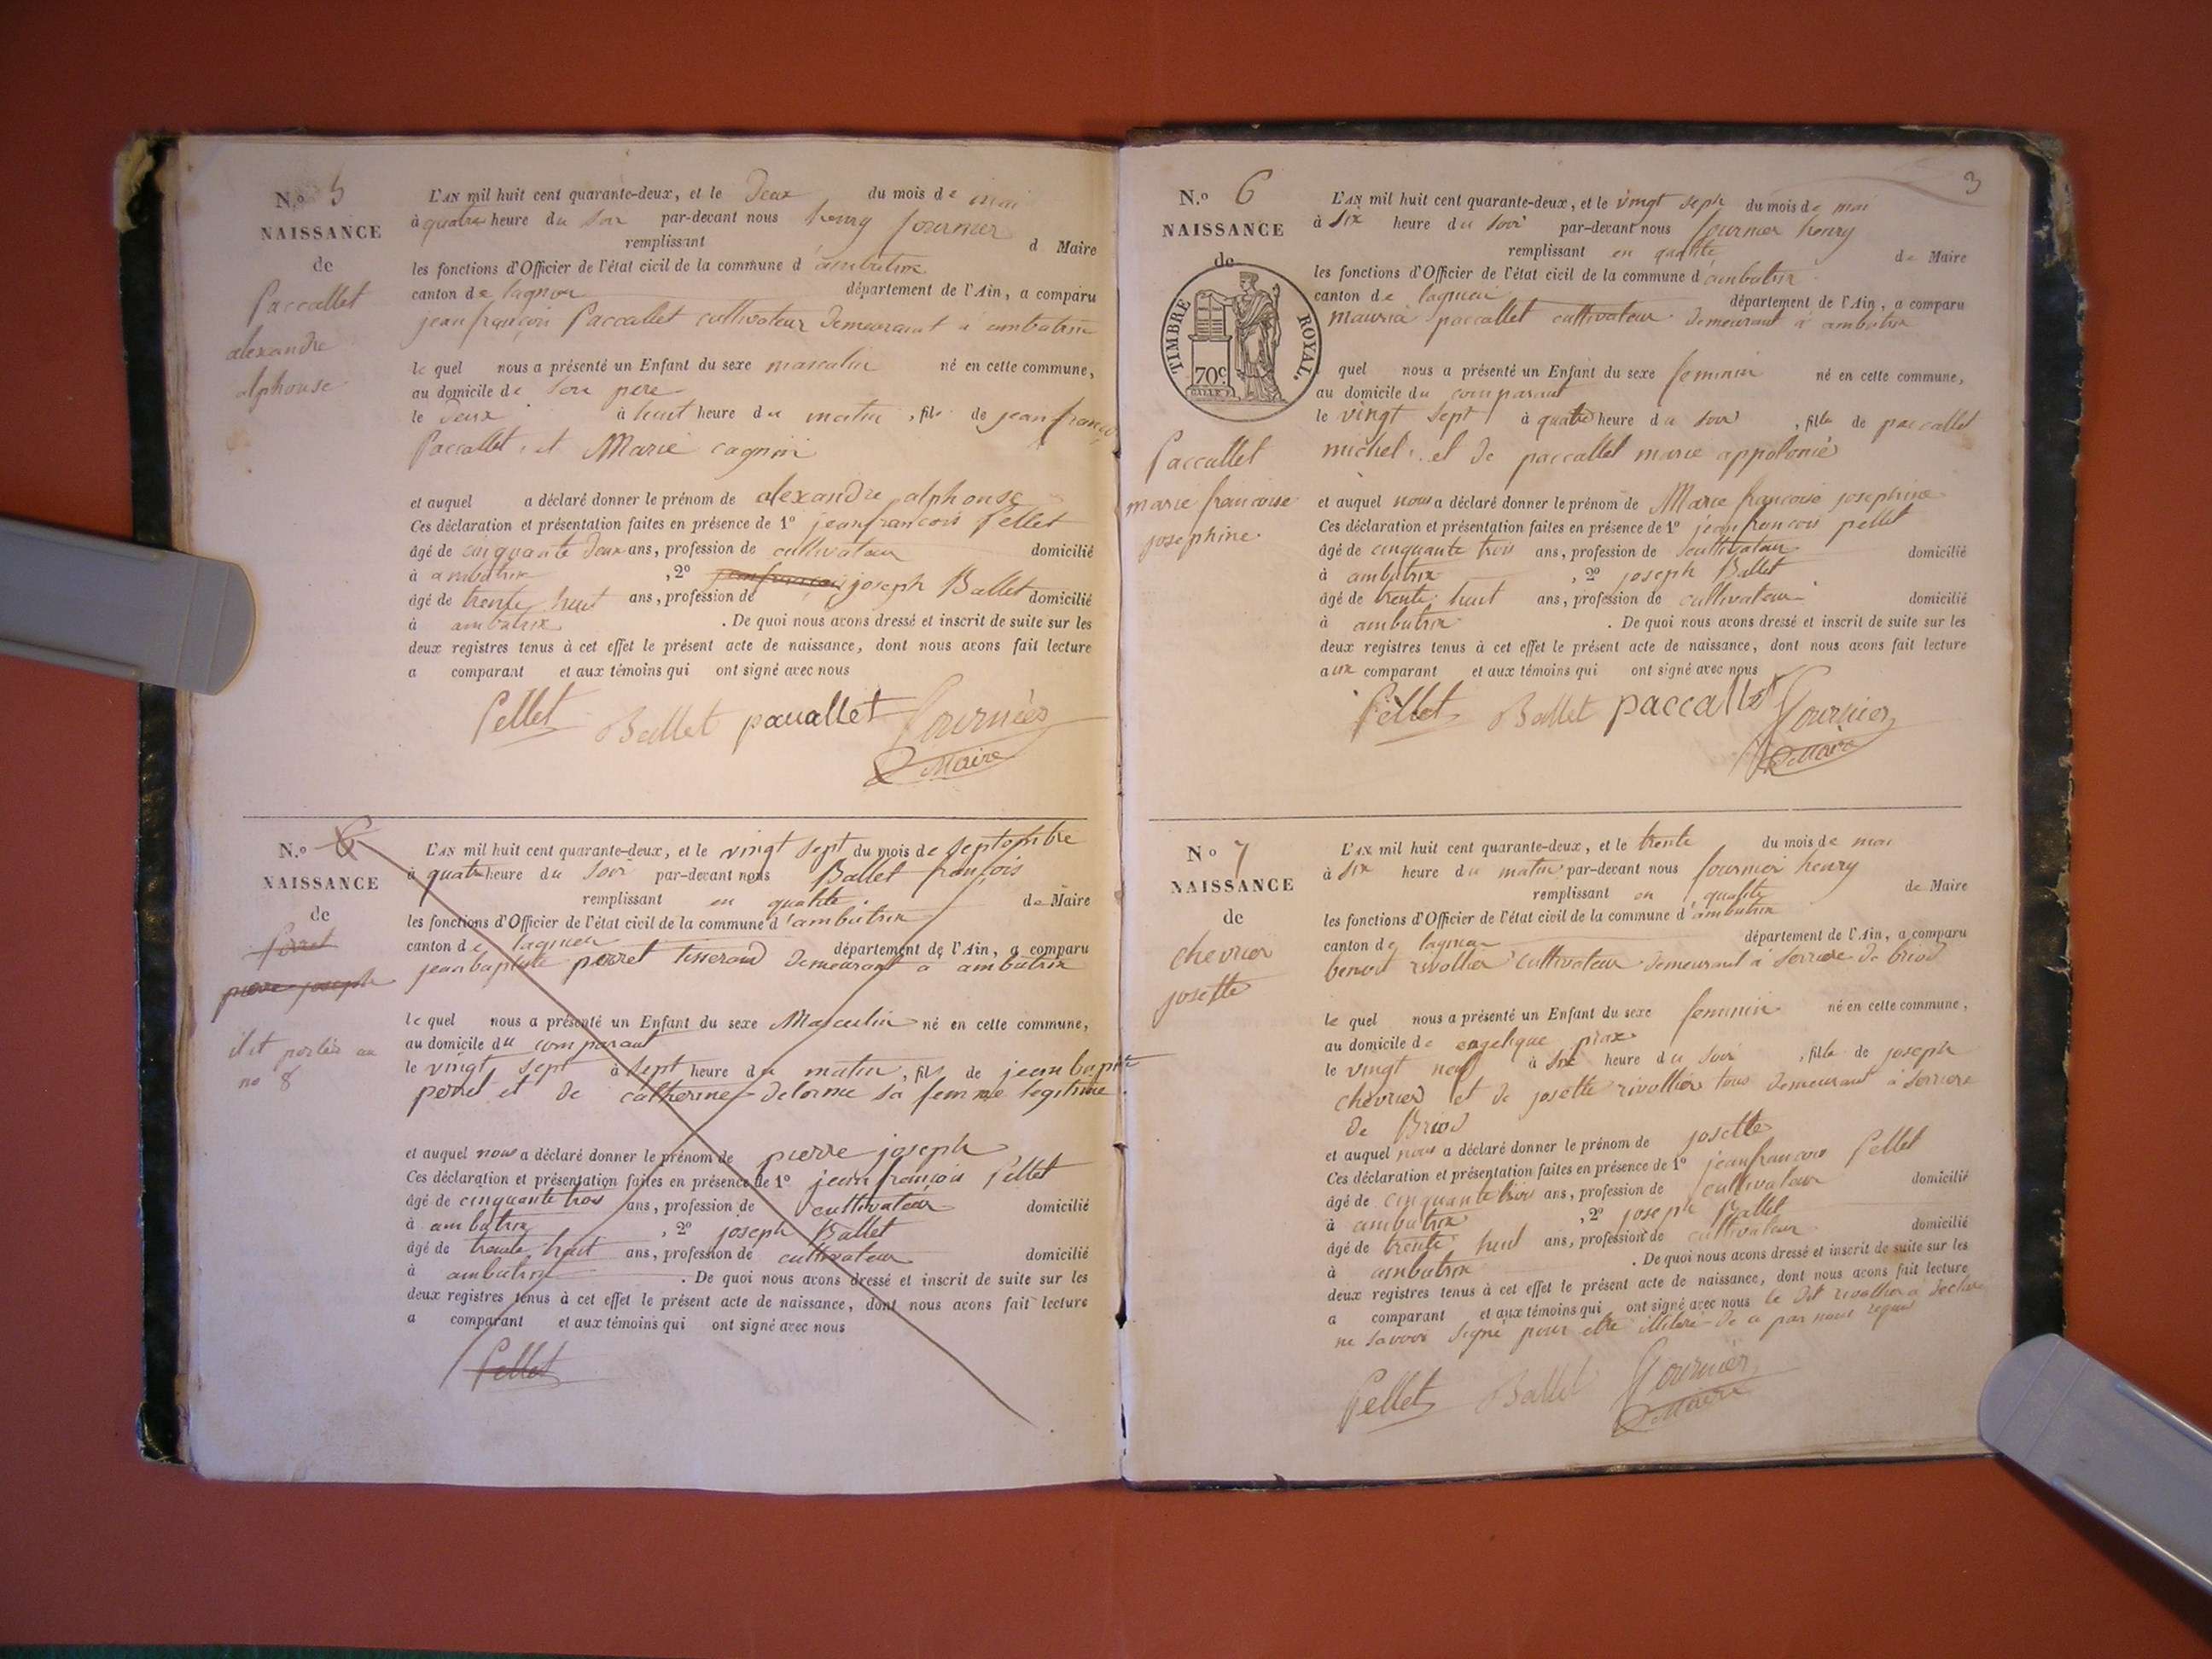 N.o 5
NAISSANCE
de
Paccallet
alexandre
alphonse
L'AN mil huit cent quarante-deux, et le Deux du mois de mai
à quatre heure du soir par-devant nous henry fournier
remplissant d Maire
les fonctions d'Officier de l'état civil de la commune d ambutrix
canton de lagnieu département de l'Ain, a comparu
jean françois Paccallet cultivateur Demeurant a ambutrix
le quel nous a présenté un Enfant du sexe masculin né en cette commune,
au domicile de son pere
le deux à huit heure du matin, fils de jean françois
Paccallet, et Marie cagnin
et auquel a déclaré donner le prénom de alexandre alphonse
Ces déclaration et présentation faites en présence de 1o jeanfrancois Pellet
âgé de cinquante deux ans, profession de cultivateur domicilié
à ambutrix , 2o jeanfrançois joseph Ballet
âgé de trente huit ans, profession de domicilié
à ambutrix . De quoi nous avons dressé et inscrit de suite sur les
deux registres tenus à cet effet le présent acte de naissance, dont nous avons fait lecture
a comparant et aux témoins qui ont signé avec nous
Pellet Ballet paccallet Fournier
Maire
N.o 6
NAISSANCE
de
Perret
pierre joseph
il est portés au
no 8
L'AN mil huit cent quarante-deux, et le vingt sept du mois de septembre
à quatre heure du soir par-devant nous Ballet françois
remplissant en qualité de Maire
les fonctions d'Officier de l'état civil de la commune d'ambutrix
canton de lagnieu département de l'Ain, a comparu
jean baptiste perret tisserand Demeurant a ambutrix
le quel nous a présenté un Enfant du sexe Masculin né en cette commune,
au domicile du comparant
le vingt sept à sept heure du matin, fils de jean baptiste
perret et de catherine delorme sa femme legitime
et auquel nous a déclaré donner le prénom de pierre joseph
Ces déclaration et présentation faites en présence de 1o jean françois Pellet
âgé de cinquante trois ans, profession de cultivateur domicilié
à ambutrix , 2o joseph Ballet
âgé de trente huit ans, profession de cultivateur domicilié
à ambutrix . De quoi nous avons dressé et inscrit de suite sur les
deux registres tenus à cet effet le présent acte de naissance, dont nous avons fait lecture
a comparant et aux témoins qui ont signé avec nous
Pellet
3
N.o 6
NAISSANCE
de
TIMBRE ROYAL.
70c
Paccallet
marie francoise
josephine
L'AN mil huit cent quarante-deux, et le vingt sept du mois de mai
à six heure du soir par-devant nous fournier henry
remplissant en qualité de Maire
les fonctions d'Officier de l'état civil de la commune d'ambutrix
canton de lagnieu département de l'Ain, a comparu
paccallet cultivateur Demeurant à ambutrix
quel nous a présenté un Enfant du sexe feminin né en cette commune,
au domicile du comparant
le vingt sept à quatre heure du soir, fille de paccallet
michel et de paccallet marie appolonie
et auquel nous a déclaré donner le prénom de Marie françoise josephine
Ces déclaration et présentation faites en présence de 1o jean francois pellet
âgé de cinquante trois ans, profession de cultivateur domicilié
à ambutrix , 2o joseph Ballet
âgé de trente huit ans, profession de cultivateur domicilié
à ambutrix . De quoi nous avons dressé et inscrit de suite sur les
deux registres tenus à cet effet le présent acte de naissance, dont nous avons fait lecture
aux comparant et aux témoins qui ont signé avec nous
Pellet Ballet paccallet Fournier
Maire
No 7
NAISSANCE
de
chevrier
josette
L'AN mil huit cent quarante-deux, et le trente du mois de mai
à six heure du matin par-devant nous fournier henry
remplissant en qualité de Maire
les fonctions d'Officier de l'état civil de la commune d'ambutrix
canton de lagnieu département de l'Ain, a comparu
benoit rivollier cultivateur Demeurant à Serriere de briod
le quel nous a présenté un Enfant du sexe feminin né en cette commune,
au domicile de engelique prax
le vingt neuf à six heure du soir, fille de joseph
chevrier et de josette rivollier tous Demeurant à Serriere
de Briod
et auquel nous a déclaré donner le prénom de josette
Ces déclaration et présentation faites en présence de 1o jeanfrancois Pellet
âgé de cinquante trois ans, profession de cultivateur domicilié
à ambutrix , 2o joseph Ballet
âgé de trente huit ans, profession de cultivateur domicilié
à ambutrix . De quoi nous avons dressé et inscrit de suite sur les
deux registres tenus à cet effet le présent acte de naissance, dont nous avons fait lecture
a comparant et aux témoins qui ont signé avec nous le dit rivollier a declaré
ne savoir signé pour etre illitéré de ce par nous requis
Pellet Ballet Fournier
Maire